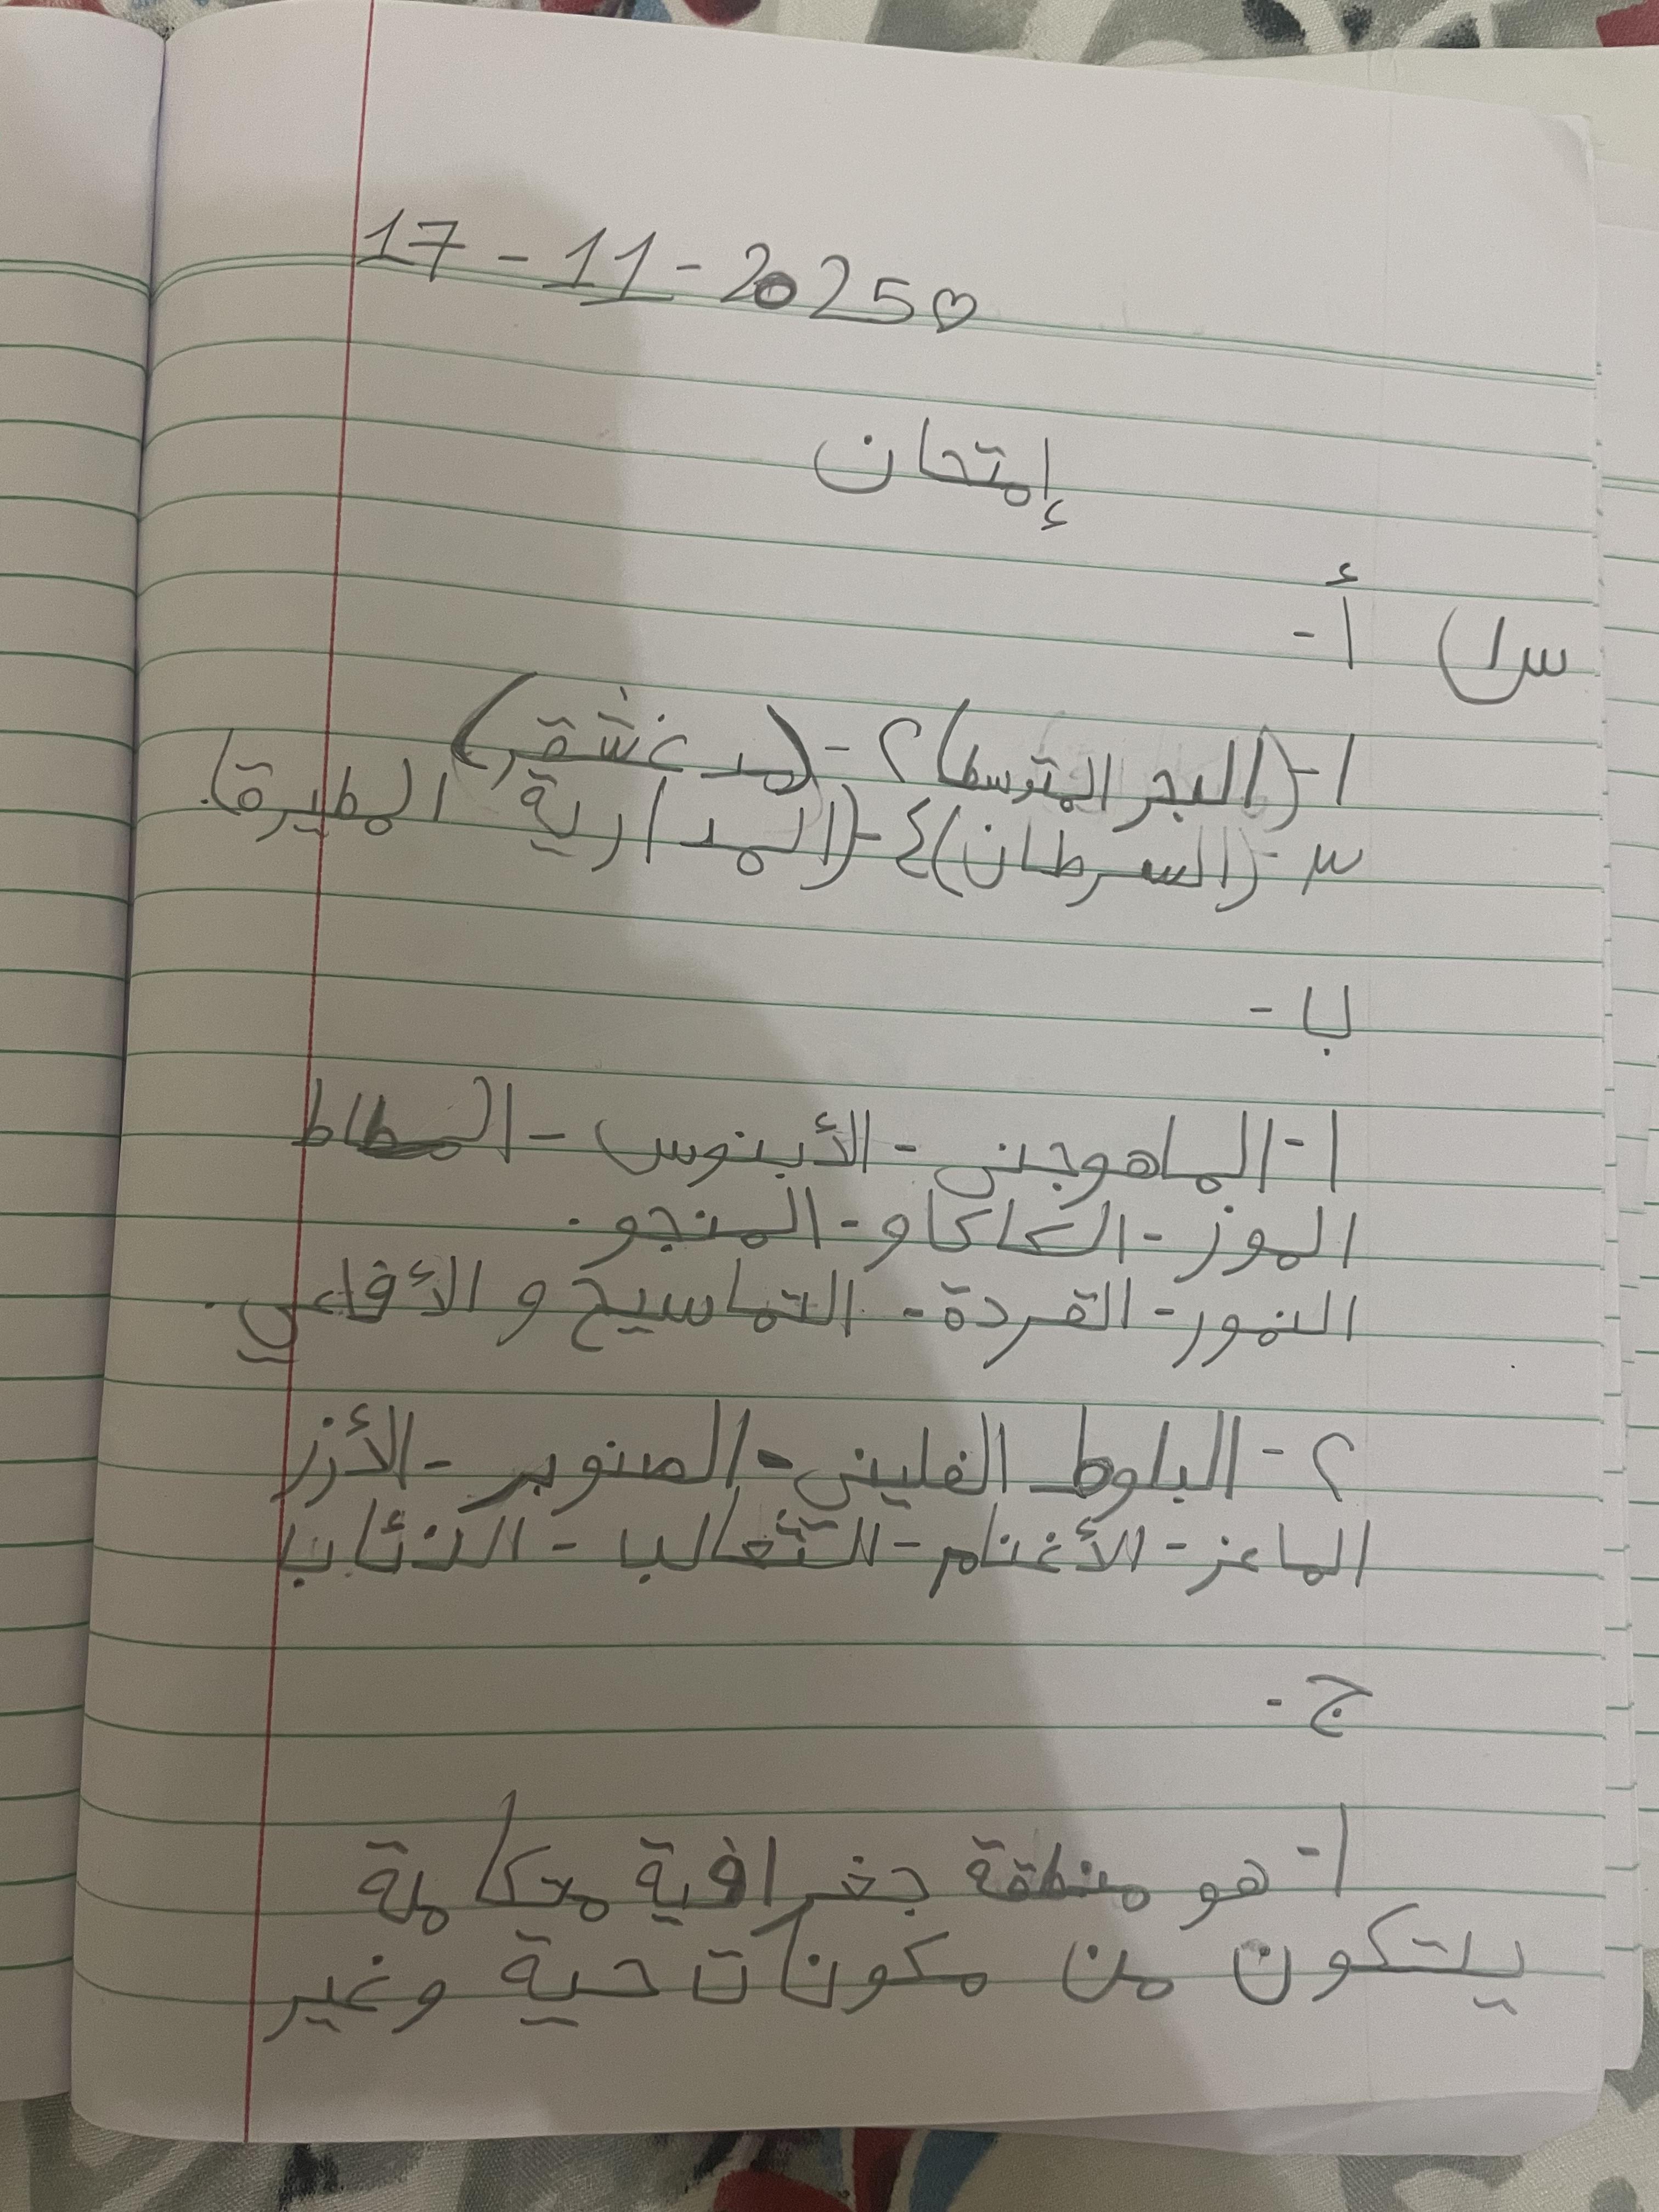 17 - 11 - 2025♡
إمتحان
س١) أ-
١-(البحر المتوسط) ٢-(مدغشقر)
٣-(السرطان) ٤-(المدارية المطيرة).
ب -
١- الماهوجنى - الأبنوس - المطاط
الموز - الكاكاو - المنجو.
النمور - القردة - التماسيح و الأفاعي.
٢- البلوط الفلينى - الصنوبر - الأرز
الماعز - الأغنام - الثعالب - الذئاب
ج -
١- هو منطقة جغرافية متكاملة
يتكون من مكونات حية وغير